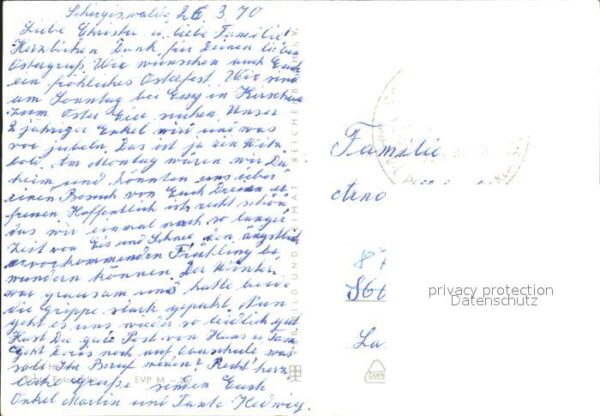 Schirgiswalde, 26.3.70
Liebe Christa u. liebe Familie!
Herzlichen Dank für Deinen lieben
Ostergruß. Wir wünschen auch Euch
ein fröhliches Osterfest. Wir sind
am Sonntag bei in Kirschau
zum Oster Eier suchen. Unser
2 jähriger Enkel wird uns was
vor jubeln. Das ist ja ein
Am Montag wären wir Da-
heim und könnten uns über
einen Besuch von Euch Dreien er-
freuen. Hoffentlich ist recht schön
das wir einmal nach so langer
Zeit von Eis und Schnee, den ängstlich
hervorkommenden Frühling be
wundern können. Der Winter
war grausam und hatte beide
die Grippe stark gepackt. Nun
geht es uns wieder so leidlich gut.
Hast Du gute Post von Hans u.
Geht Doris noch auf Oberschule, was
soll Ihr Beruf einmal Recht herz
liche Grüße senden Euch
Onkel Martin und Tante Hedwig.
EVP M
BILD UND HEIMAT REICHENBACH
Familie
86
La
privacy protection
Datenschutz